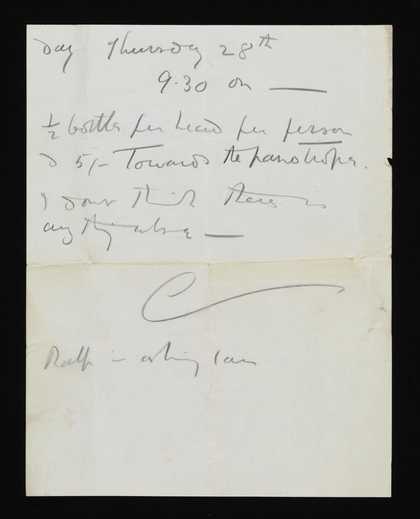 Day Thursday 28th
9.30 on —
½ bottle per head per person
& 5/- Towards the panotrope.
I dont think there is
anything else —
C
Ralph is asking Ian